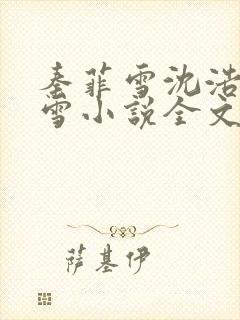 秦菲雪沈浩
雪小说全文
萨基伊